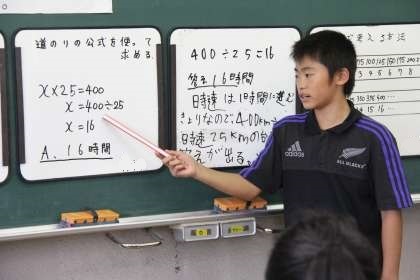 道のりの公式を使って
求める
x×25=400
x=400÷25
x=16
A.16時間
400÷25=16
答え 16時間
時速は1時間に進む
きょりなので、400km÷
時速25kmの
答えが出る。
考える方法
75 100 125 150 175 200
3 4 5 6 7 8
adidas
ALL BLACKS